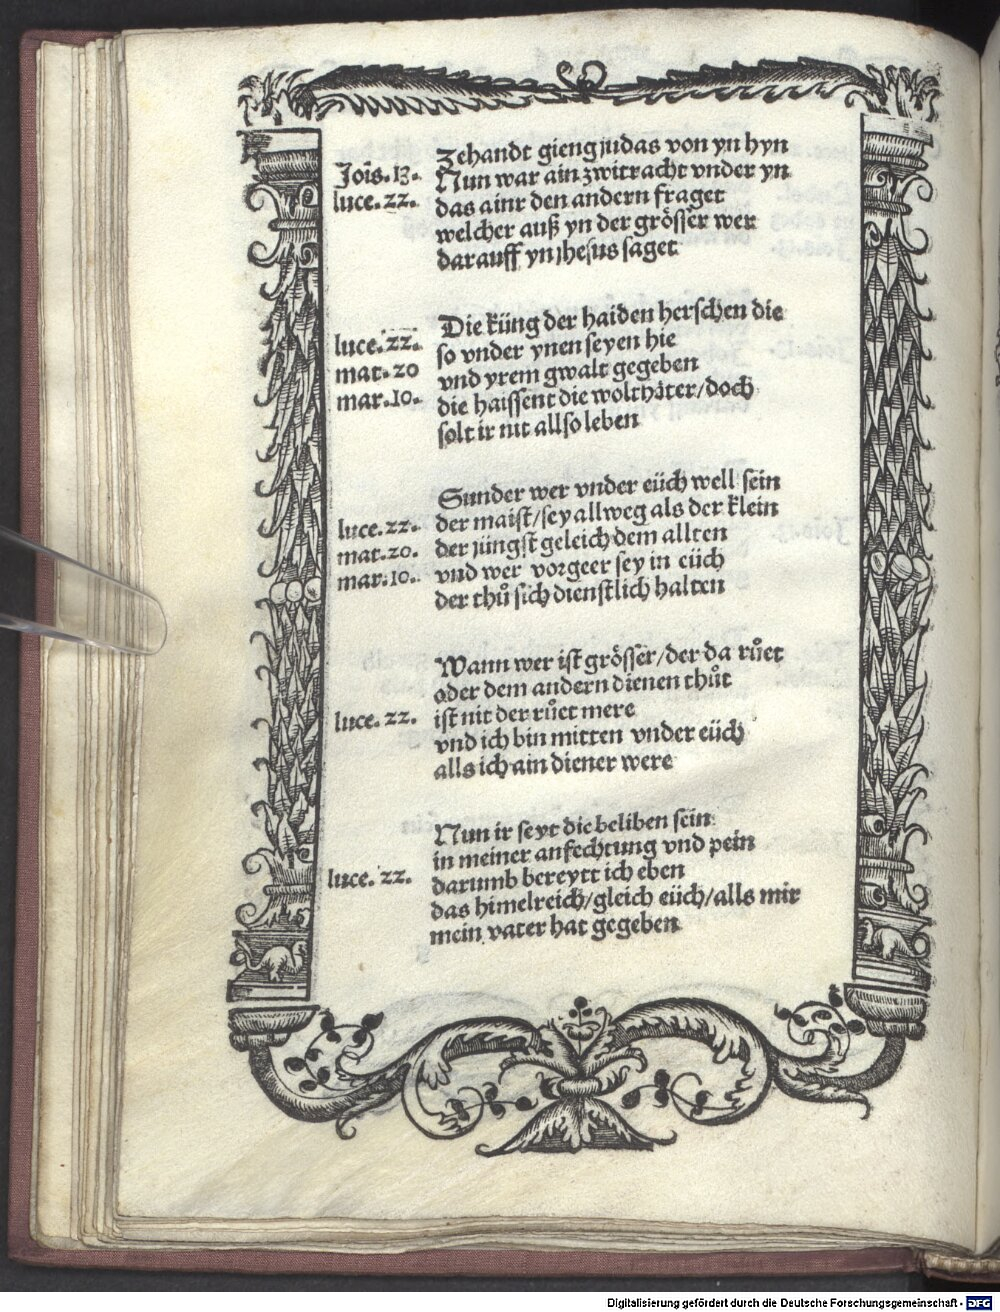 Zehandt gieng judas von yn hyn
Jois. 13. Nun war ain zwitracht vnder yn
luce. 22. das ainr den andern fraget
welcher auß yn der grösser wer
darauff yn jhesus saget
Die küng der haiden herschen die
luce. 22. so vnder ynen seyen hie
mat. 20 vnd yrem gwalt gegeben
mar. 10. die haissent die wolthäter/doch
solt ir nit allso leben
Sunder wer vnder eüch well sein
luce. 22. der maist/sey allweg als der klein
mat. 20. der jüngst geleich dem allten
mar. 10. vnd wer vorgeer sey in eüch
der thuͦ sich dienstlich halten
Wann wer ist grösser/der da ruͦet
oder dem andern dienen thuͦt
luce. 22. ist nit der ruͦet mere
vnd ich bin mitten vnder eüch
alls ich ain diener were
Nun ir seyt die beliben sein
in meiner anfechtung vnd pein
luce. 22. darumb bereytt ich eben
das himelreich/gleich eüch/alls mir
mein vater hat gegeben
Digitalisierung gefördert durch die Deutsche Forschungsgemeinschaft - DFG